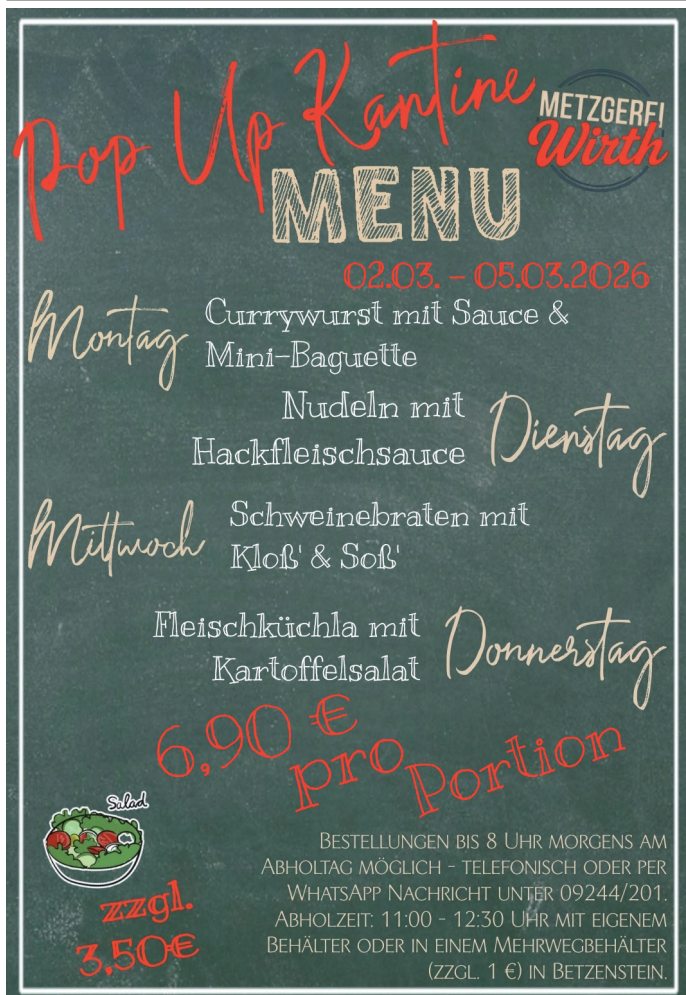 Pop Up Kantine
METZGEREI
Wirth
MENU
02.03. – 05.03.2026
Montag
Currywurst mit Sauce &
Mini-Baguette
Nudeln mit
Hackfleischsauce
Dienstag
Mittwoch
Schweinebraten mit
Kloß' & Soß'
Fleischküchla mit
Kartoffelsalat
Donnerstag
6,90 €
pro
Portion
Salad
zzgl.
3,50€
Bestellungen bis 8 Uhr morgens am
Abholtag möglich - telefonisch oder per
WhatsApp Nachricht unter 09244/201.
Abholzeit: 11:00 - 12:30 Uhr mit eigenem
Behälter oder in einem Mehrwegbehälter
(zzgl. 1 €) in Betzenstein.